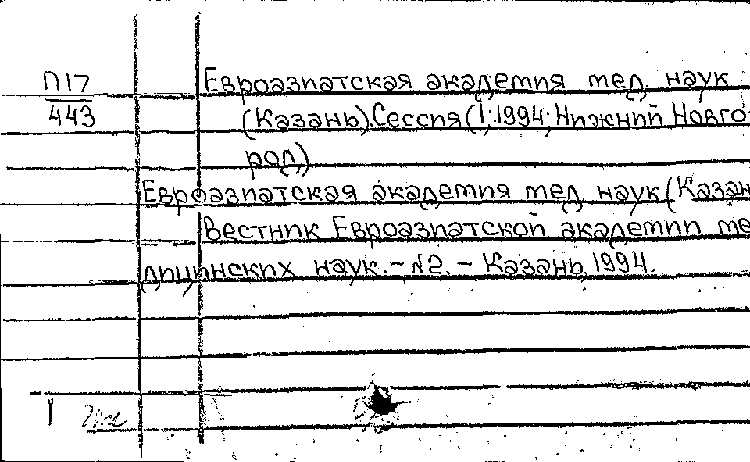 П17 Евроазиатская академия мед. наук
443 (Казань). Сессия (I; 1994; Нижний Новго-
род)
Евроазиатская академия мед. наук (Казан
Вестник Евроазиатской академии ме
дицинских наук. - №2. - Казань, 1994.
I